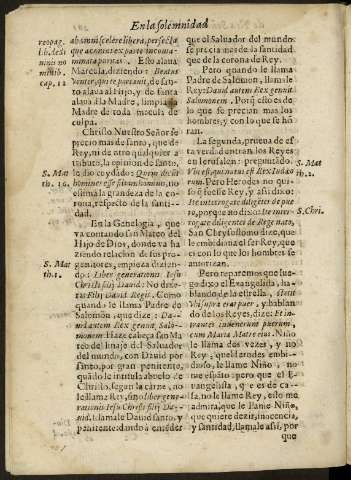 En la solemnidad
reopag.
Lib. de di
uinis no
minib.
cap. 12
ab omni scelere libera, perfecta
que ac omni ex parte incoin-
minata puritas. Esto alaua
Marcela, diziendo: Beatus
venter, qui te portauit, de san-
to alaua al Hijo, y de santa
alaua a la Madre, limpia
Madre de toda macula de
culpa.
Christo Nuestro Señor se
precio mas de santo, que de
Rey, ni de otro qualquier a
tributo, la opinion de santo,
S. Mat
th. 16.
le dio cuydado: Quem dicunt
homines esse filium hominis, no
estima la grandeza de la co-
rona, respecto de la santi-
dad.
En la Genelogia, que
va contando san Mateo del
Hijo de Dios, donde va ha
ziendo relacion de sus pro-
S. Mat
th. 1.
genitores, empieza dizien-
do: Liber generationis Iesu
Christi filij Dauid: No dize-
ra: Filij Dauid Regis. Como
quando le llama Padre de
Salomon, que dize: Da-
uid autem Rex genuit Salo-
monem. Haze cabeça san Ma
teo del linaje del Saluador
del mundo, con Dauid por
santo, por gran penitente,
quãdo le intitula abuelo de
Christo, segun la carne, no
le llama Rey, sino liber gene-
rationis Iesu Christi filij Da-
uid. llamale Dauid santo, y
penitente: dando à enteder
que el Saluador del mundo
se precia mas de la santidad
que de la corona de Rey.
Pero quando le llama
Padre de Salomon, le llama
Rey: Dauid autem Rex genuit
Salomonem. Porq̃ esto es de
lo que se precian mas los
hombres, y con lo que se hõ
ran.
La segunda, prueua de es
ta verdad entran los Reyes
en Ierusalen: preguntãdo.
S. Mat
th. 2.
Vbi est, qui natus est Rex Iudæo
rum? Pero Herodes no qui-
so q̃ fuesse Rey, y asi dixo:
Ite interrogate diligẽter de pue
ro, porque no dixo: Ite inter-
S. Chri.
rogate diligenter de Rege nato,
San Chrysostomo dize, que
le embidiaua el ser Rey, que
es con lo que los hombres se
autorizan.
Pero reparemos que lue-
go dixo el Euangelista, ha-
blando de la estrella, stetit
Vbi supra erat puer, y hablan
do de los Reyes, dize: Et in-
trantes inuenerunt puerum,
cum Maria Matre eius. Niño
le llama dos vezes, y no
Rey, que el Herodes embi-
dioso, le llame Niño, no
me espanto: pero que el E-
uangelista, que es de ca-
sa, no le llame Rey, esto me
admira, que le llame Niño,
que quiere dezir, inocencia,
y santidad, llamale asi, por
que